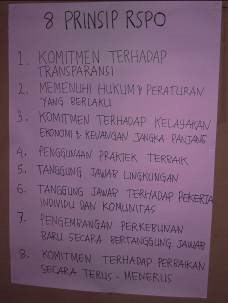 8 PRINSIP RSPO
1. KOMITMEN TERHADAP
TRANSPARANSI
2. MEMENUHI HUKUM & PERATURAN
YANG BERLAKU
3. KOMITMEN TERHADAP KELAYAKAN
EKONOMI & KEUANGAN JANGKA PANJANG
4. PENGGUNAAN PRAKTEK TERBAIK
5. TANGGUNG JAWAB LINGKUNGAN
6. TANGGUNG JAWAB TERHADAP PEKERJA
INDIVIDU DAN KOMUNITAS
7. PENGEMBANGAN PERKEBUNAN
BARU SECARA BERTANGGUNG JAWAB
8. KOMITMEN TERHADAP PERBAIKAN
SECARA TERUS - MENERUS